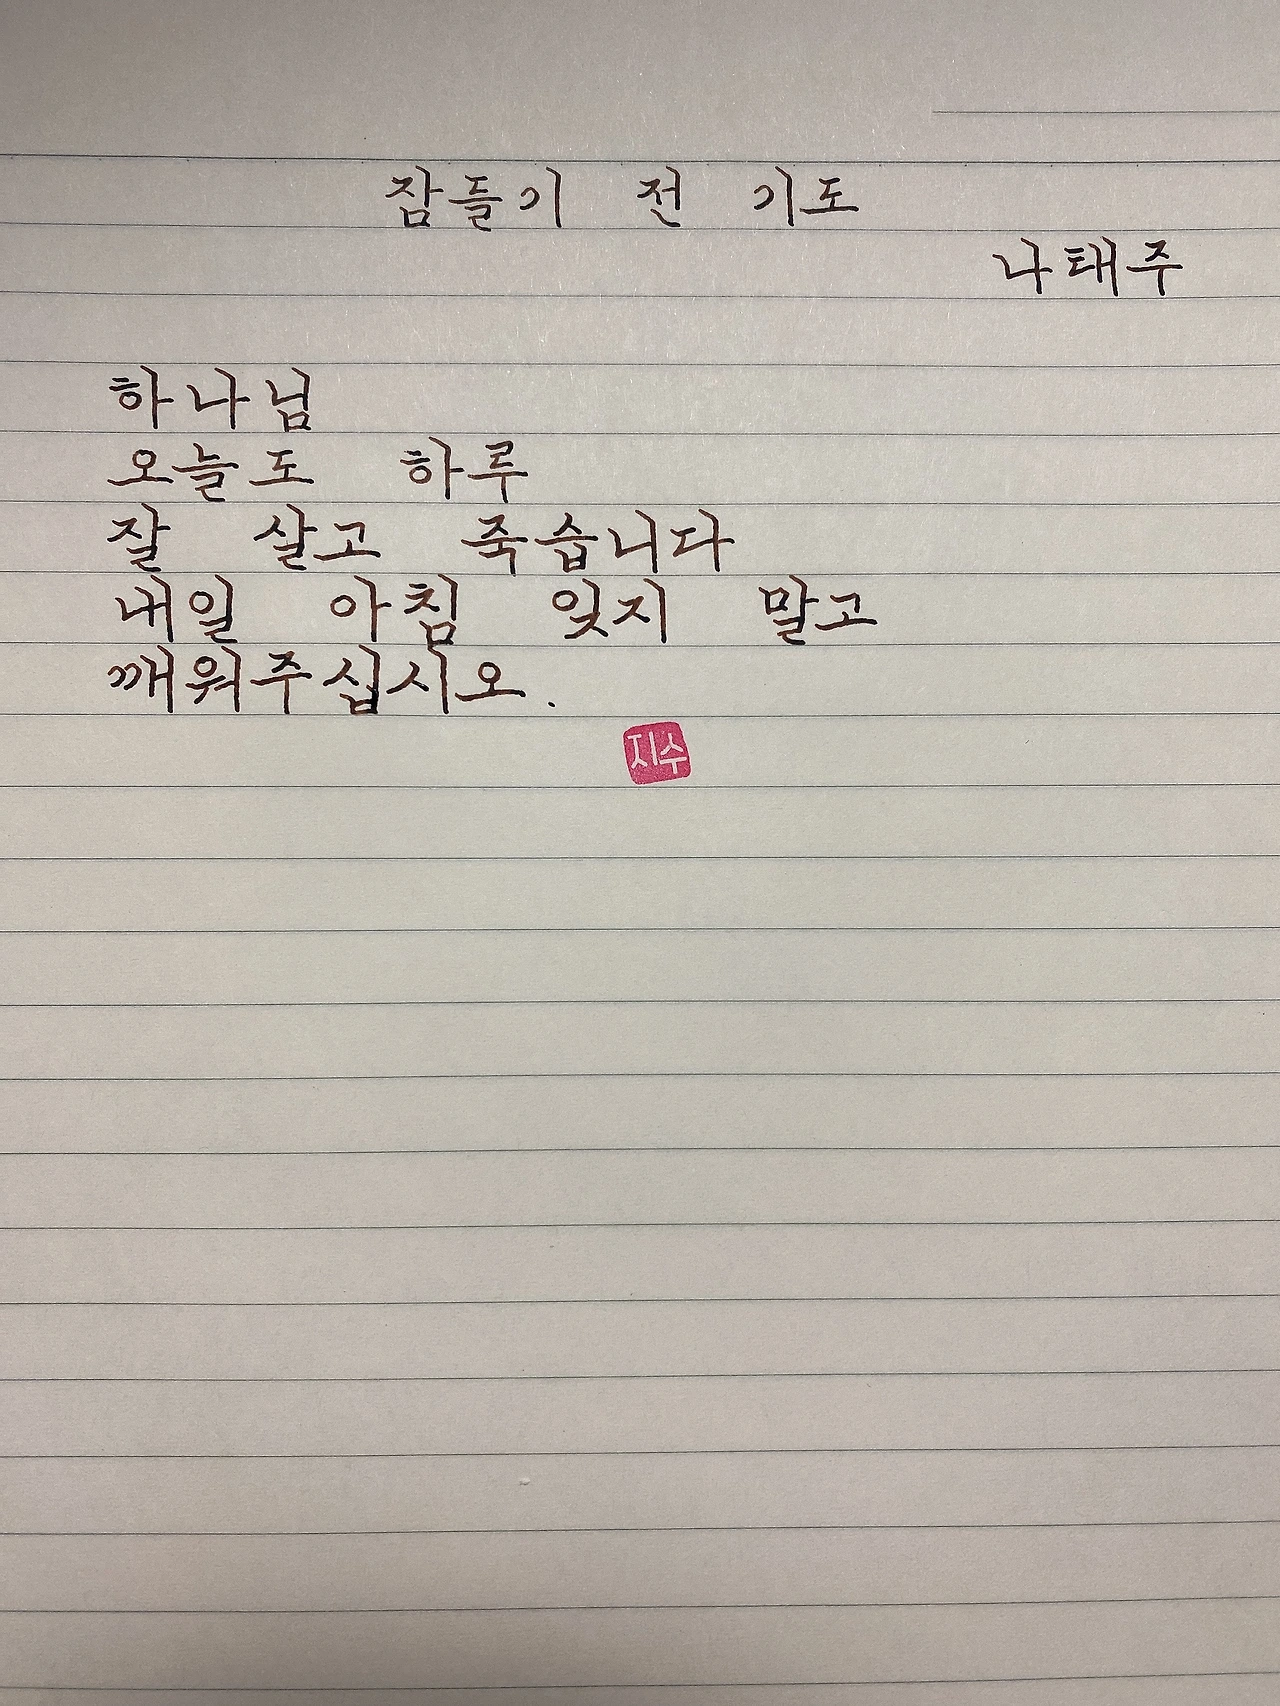 잠들기 전 기도
나태주
하나님
오늘도 하루
잘 살고 죽습니다
내일 아침 잊지 말고
깨워주십시오.
지수